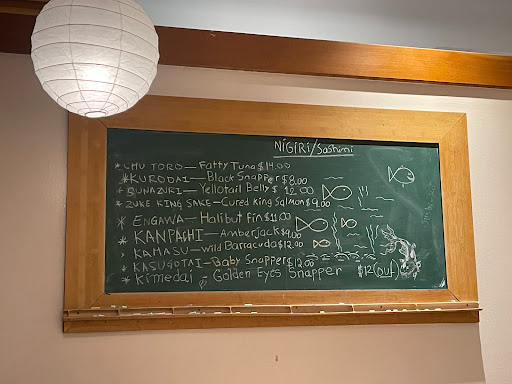 NiGiRi/Sashimi
* CHU TORO — Fatty Tuna $14.00
* KURODAI — Black Snapper $8.00
* SUNAZURI — Yellotail Belly $ 12.00
* ZUKE KING SAKE — Cured King Salmon $9.00
* ENGAWA — Halibut Fin $11.00
* KANPACHI — Amberjack $9.00
* KAMASU — Wild Barracuda $12.00
* KASUGOTAI — Baby Snapper $12.00
* Kimedai - Golden Eyes Snapper $12 (out)